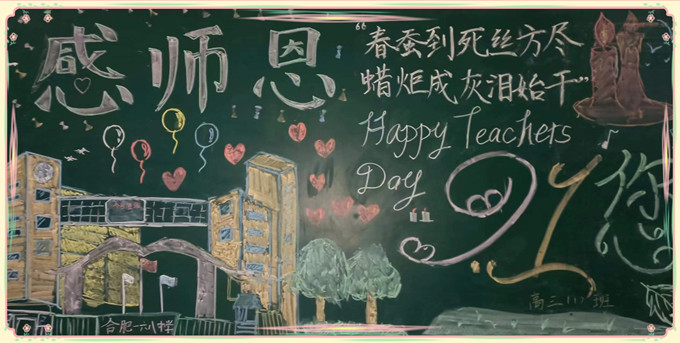 感师恩
“春蚕到死丝方尽
蜡炬成灰泪始干”
Happy Teachers
Day !!
您
高三(1)班
合肥一六八